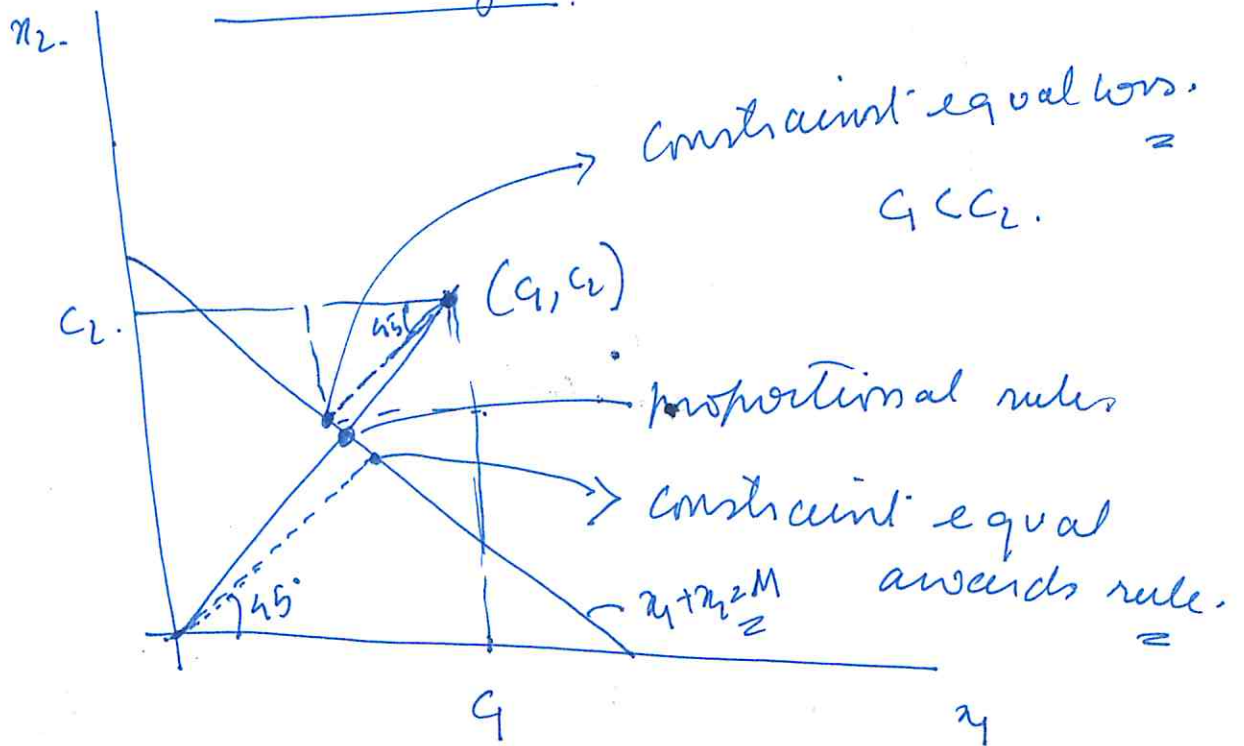 x₂
constrainst equal loss.
c₁ < c₂.
(c₁, c₂)
c₂.
45
proportional rules
constraint equal
awards rule.
x₁+x₂=M
45°
c₁
x₁